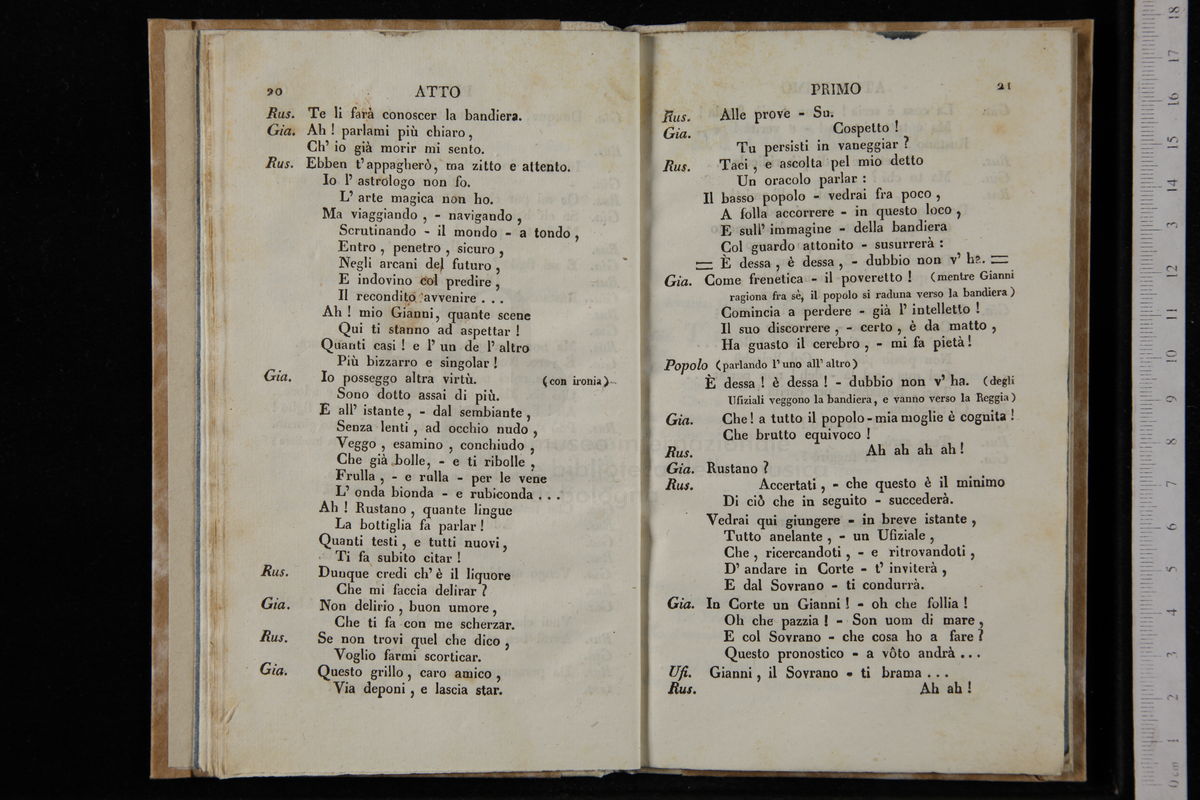 20 ATTO
Rus. Te li farà conoscer la bandiera.
Gia. Ah ! parlami più chiaro ,
Ch' io già morir mi sento.
Rus. Ebben t' appagherò, ma zitto e attento.
Io l' astrologo non fo.
L' arte magica non ho.
Ma viaggiando , - navigando ,
Scrutinando - il mondo - a tondo ,
Entro , penetro , sicuro ,
Negli arcani del futuro ,
E indovino col predire ,
Il recondito avvenire . . .
Ah ! mio Gianni, quante scene
Qui ti stanno ad aspettar !
Quanti casi ! e l' un de l' altro
Più bizzarro e singolar !
Gia. Io posseggo altra virtù. (con ironia)
Sono dotto assai di più.
E all' istante, - dal sembiante ,
Senza lenti , ad occhio nudo ,
Veggo , esamino , conchiudo ,
Che già bolle, - e ti ribolle ,
Frulla , - e rulla - per le vene
L' onda bionda - e rubiconda . . .
Ah ! Rustano , quante lingue
La bottiglia fa parlar !
Quanti testi , e tutti nuovi ,
Ti fa subito citar !
Rus. Dunque credi ch' è il liquore
Che mi faccia delirar ?
Gia. Non delirio , buon umore ,
Che ti fa con me scherzar.
Rus. Se non trovi quel che dico ,
Voglio farmi scorticar.
Gia. Questo grillo , caro amico ,
Via deponi , e lascia star.
PRIMO 21
Rus. Alle prove - Su.
Gia. Cospetto !
Tu persisti in vaneggiar ?
Rus. Taci , e ascolta pel mio detto
Un oracolo parlar :
Il basso popolo - vedrai fra poco ,
A folla accorrere - in questo loco ,
E sull' immagine - della bandiera
Col guardo attonito - susurrerà :
= È dessa , è dessa , - dubbio non v' ha. =
Gia. Come frenetica - il poveretto ! (mentre Gianni
ragiona fra sè, il popolo si raduna verso la bandiera)
Comincia a perdere - già l' intelletto !
Il suo discorrere , - certo , è da matto ,
Ha guasto il cerebro , - mi fa pietà !
Popolo (parlando l' uno all' altro)
È dessa ! è dessa ! - dubbio non v' ha. (degli
Ufiziali veggono la bandiera, e vanno verso la Reggia)
Gia. Che ! a tutto il popolo - mia moglie è cognita !
Che brutto equivoco !
Rus. Ah ah ah ah !
Gia. Rustano ?
Rus. Accertati , - che questo è il minimo
Di ciò che in seguito - succederà.
Vedrai qui giungere - in breve istante ,
Tutto anelante , - un Ufiziale ,
Che , ricercandoti , - e ritrovandoti ,
D' andare in Corte - t' inviterà ,
E dal Sovrano - ti condurrà.
Gia. In Corte un Gianni ! - oh che follia !
Oh che pazzia ! - Son uom di mare ,
E col Sovrano - che cosa ho a fare ?
Questo pronostico - a vôto andrà . . .
Ufi. Gianni , il Sovrano - ti brama . . .
Rus. Ah ah !
museo internazionale
biblioteca musica
bologna
0 cm 1 2 3 4 5 6 7 8 9 10 11 12 13 14 15 16 17 18